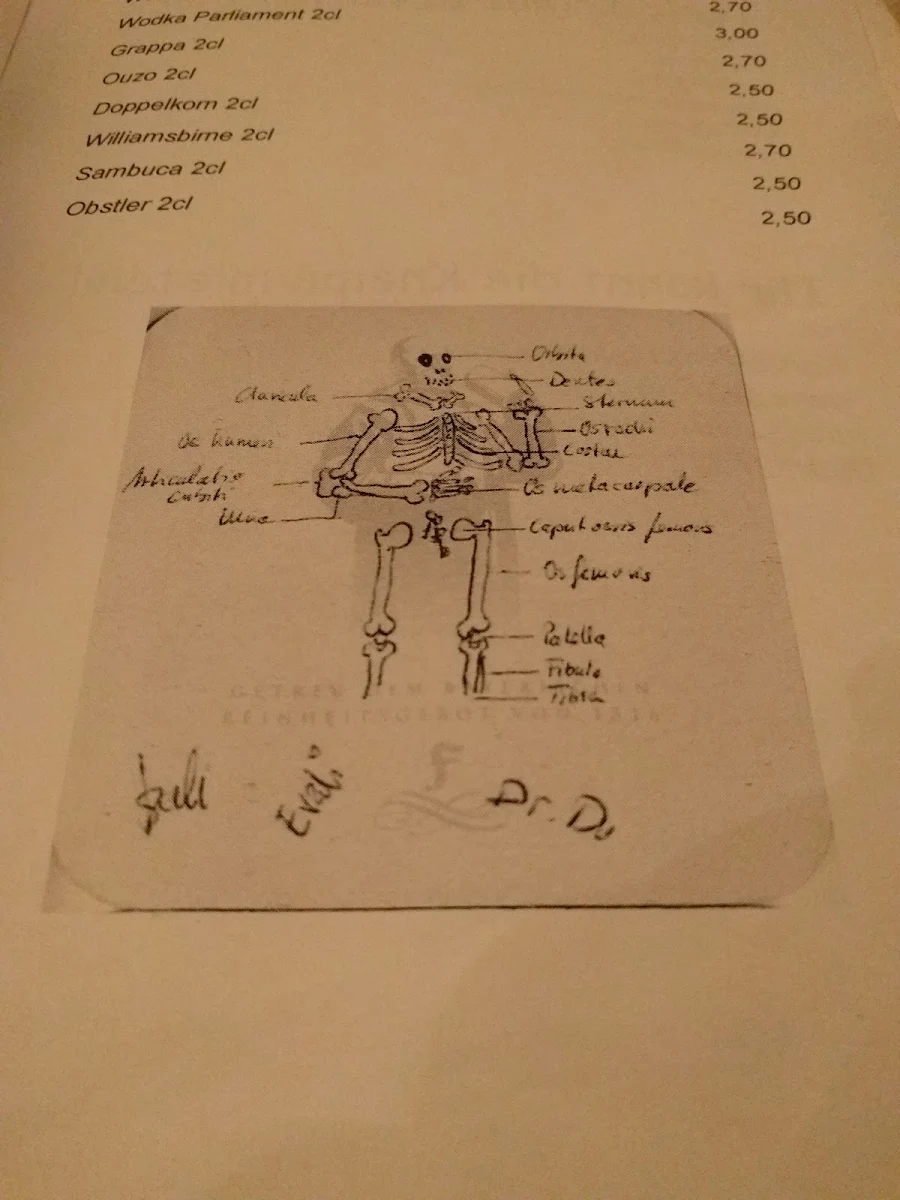 Wodka Parliament 2cl 2,70
Grappa 2cl 3,00
Ouzo 2cl 2,70
Doppelkorn 2cl 2,50
Williamsbirne 2cl 2,50
Sambuca 2cl 2,70
Obstler 2cl 2,50
2,50
Orbita
Dentes
Clavicula
Sternum
Os radii
Os humeri
Costae
Articulatio
cubiti
Os metacarpale
Ulna
Caput ossis femoris
Os femoris
Patella
Fibula
Tibia
GETREU DEM BAYERISCHEN
REINHEITSGEBOT VON 1516
F
Eval
Dr. D